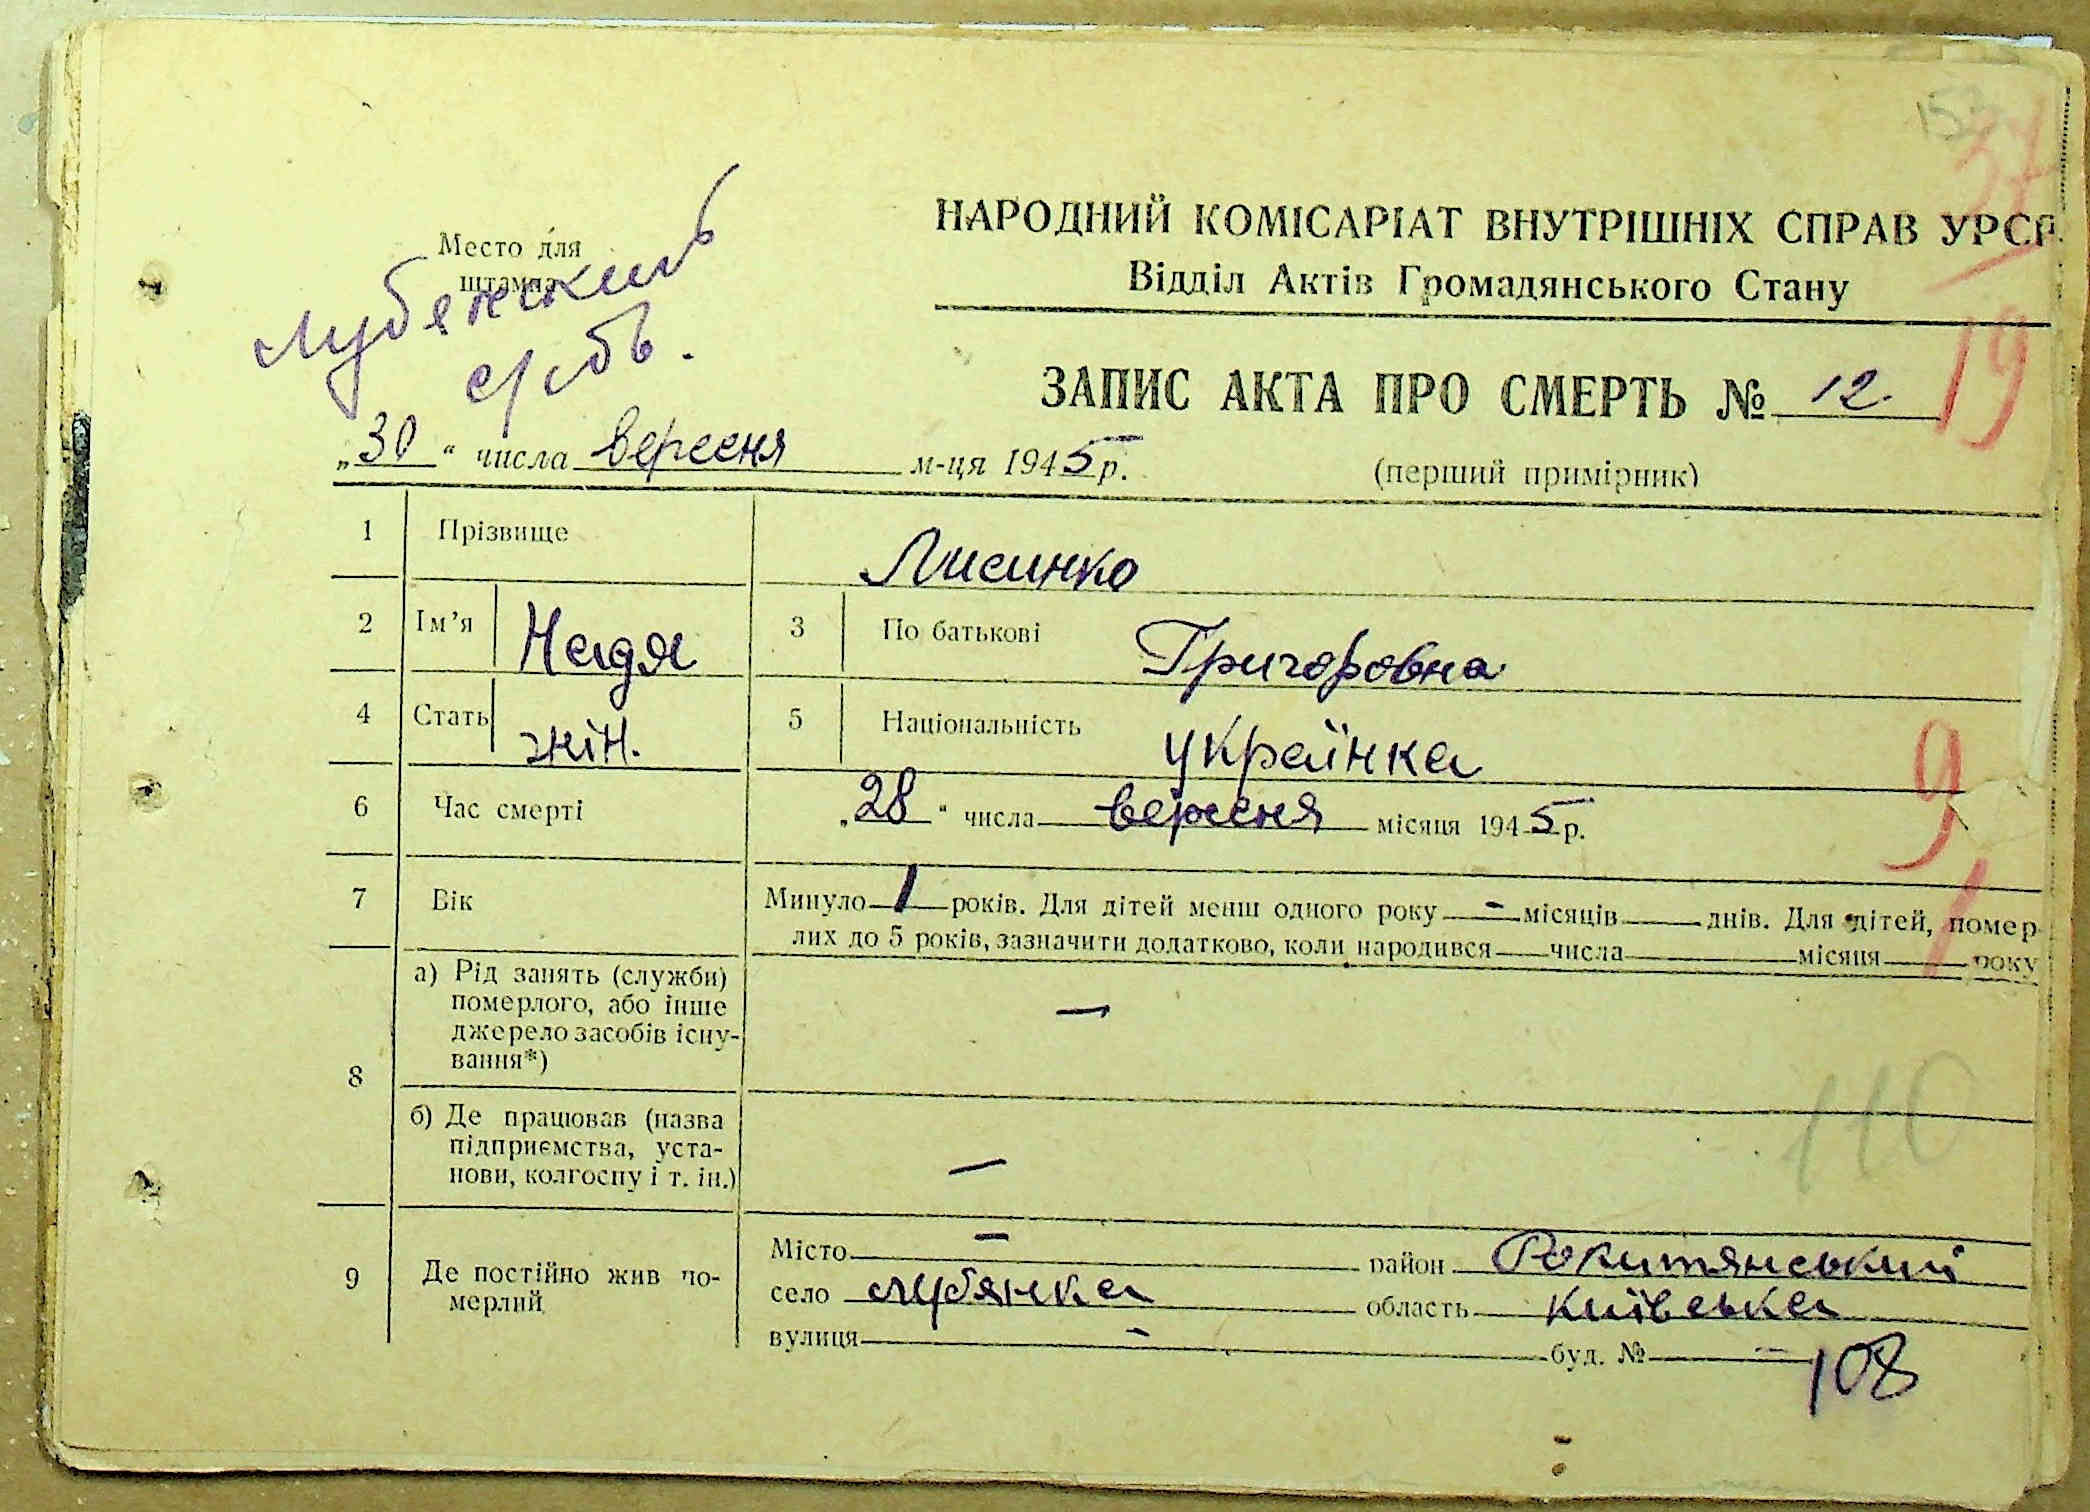 37
НАРОДНИЙ КОМІСАРІАТ ВНУТРІШНІХ СПРАВ УРСР
Відділ Актів Громадянського Стану
Место для
штампа
Лубянский
с/сов.
19
ЗАПИС АКТА ПРО СМЕРТЬ № 12.
„30“ числа вересня м-ця 1945 р.
(перший примірник)
1 Прізвище Лисинко
2 Ім’я Надя 3 По батькові Григоровна
4 Стать жін. 5 Національність українка
6 Час смерті „28“ числа вересня місяця 1945 р.
9
1
7 Вік Минуло 1 років. Для дітей менш одного року - місяців днів. Для дітей, помер-
лих до 5 років, зазначити додатково, коли народився числа місяця року
8 а) Рід занять (служби)
померлого, або інше
джерело засобів існу-
вання*) —
б) Де працював (назва
підприємства, уста-
нови, колгоспу і т. ін.) —
110
9 Де постійно жив по-
мерлий
Місто - район Рокитянський
село Лубянка область Київська
вулиця - буд. № -
108